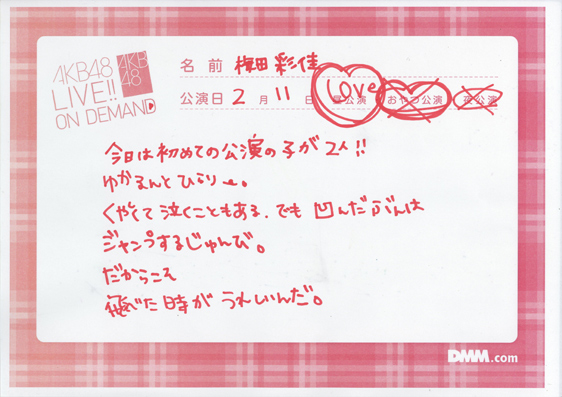 AKB48
LIVE!!
ON DEMAND
AKB
48
名前 梅田彩佳
公演日 2月11日 昼公演 おやつ公演 夜公演
Love
今日は初めての公演の子が2人!!
ゆかるんとひらりー。
くやしくて泣くこともある。でも 凹んだぶんは
ジャンプするじゅんび。
だからこそ
飛べた時が うれしいんだ。
DMM.com